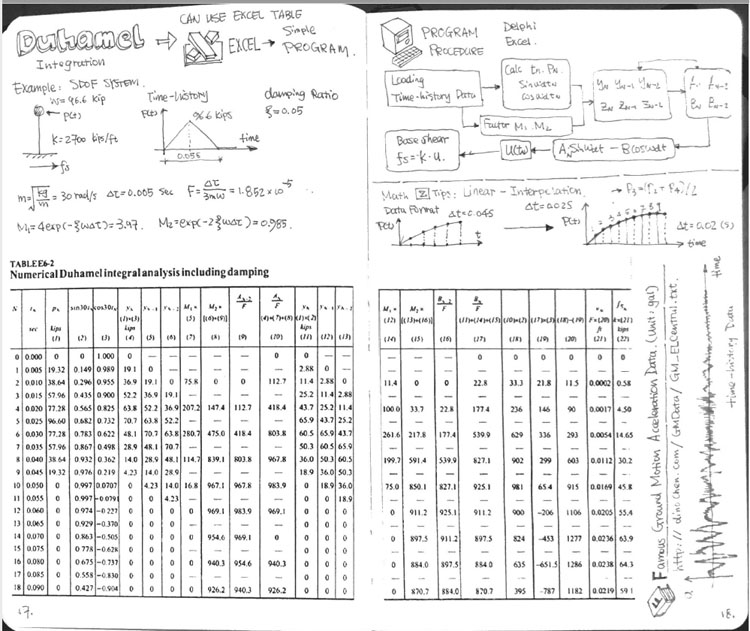 CAN USE EXCEL TABLE
Duhamel → EXCEL → Simple PROGRAM.
Integration
Example: SDOF SYSTEM.
W=96.6 kip
P(t)
K=2700 kips/ft
fs
Time-history
P(t)
96.6 kips
time
0.055
damping Ratio
ξ=0.05
= 30 rad/s Δτ=0.005 sec F=Δτ/3mω=1.852×10⁻⁵
M₁=4exp(-ξωΔτ)=3.97. M₂=exp(-2ξωΔτ)=0.985.
TABLE E6-2
Numerical Duhamel integral analysis including damping
N tₙ pₙ sin30tₙ cos30tₙ yₙ yₙ₋₁ yₙ₋₂ M₁× M₂× Aₙ₋₂/F Aₙ/F yₙ yₙ₋₁ yₙ₋₂
(1)×(3) (5) [(6)+(9)] (4)+(7)+(8) (1)×(2)
sec kips kips kips
(1) (2) (3) (4) (5) (6) (7) (8) (9) (10) (11) (12) (13)
0 0.000 0 0 1.000 — — — — — — 0 0 — —
1 0.005 19.32 0.149 0.989 19.1 0 — — — — — 2.88 0 —
2 0.010 38.64 0.296 0.955 36.9 19.1 0 75.8 0 0 112.7 11.4 2.88 0
3 0.015 57.96 0.435 0.900 52.2 36.9 19.1 — — — — 25.2 11.4 2.88
4 0.020 77.28 0.565 0.825 63.8 52.2 36.9 207.2 147.4 112.7 418.4 43.7 25.2 11.4
5 0.025 96.60 0.682 0.732 70.7 63.8 52.2 — — — — 65.9 43.7 25.2
6 0.030 77.28 0.783 0.622 48.1 70.7 63.8 280.7 475.0 418.4 803.8 60.5 65.9 43.7
7 0.035 57.96 0.867 0.498 28.9 48.1 70.7 — — — — 50.3 60.5 65.9
8 0.040 38.64 0.932 0.362 14.0 28.9 48.1 114.7 839.1 803.8 967.8 36.0 50.3 60.5
9 0.045 19.32 0.976 0.219 4.23 14.0 28.9 — — — — 18.9 36.0 50.3
10 0.050 0 0.997 0.0707 0 4.23 14.0 16.8 967.1 967.8 983.9 0 18.9 36.0
11 0.055 0 0.997 -0.0791 0 0 4.23 — — — — 0 0 18.9
12 0.060 0 0.974 -0.227 0 0 0 0 969.1 983.9 969.1 0 0 0
13 0.065 0 0.929 -0.370 0 0 0 — — — — 0 0 0
14 0.070 0 0.863 -0.505 0 0 0 0 954.6 969.1 0 0 0
15 0.075 0 0.778 -0.628 0 0 0 — — — — 0 0 0
16 0.080 0 0.675 -0.737 0 0 0 0 940.3 954.6 940.3 0 0 0
17 0.085 0 0.558 -0.830 0 0 0 — — — — 0 0 0
18 0.090 0 0.427 -0.904 0 0 0 0 926.2 940.3 926.2 0 0 0
17.
PROGRAM PROCEDURE
Delphi
Excel.
Loading Time-history Data
Calc tn. Pn. Sinωtn Cosωtn
Factor M₁. M₂
yₙ yₙ₋₁ yₙ₋₂
zₙ zₙ₋₁ zₙ₋₂
Base shear
fs=k·u.
U(tn)
AₙSinωt - Bcosωt
Math Tips: Linear-Interpolation.
Data Format Δt=0.045
P(t)
t
Δt=0.025
P(t)
Δt=0.02(s)
time
M₁× M₂× Bₙ₋₂/F Bₙ/F
(12) [(13)+(16)] (11)+(14)+(15) (10)×(2) (17)×(3) (18)-(19) F×(20) k×(21)
ft kips
(14) (15) (16) (17) (18) (19) (20) (21) (22)
— — — 0 — — — 0 0
— — — — — — — — —
11.4 0 0 22.8 33.3 21.8 11.5 0.0002 0.58
— — — — — — — — —
100.0 33.7 22.8 177.4 236 146 90 0.0017 4.50
— — — — — — — — —
261.6 217.8 177.4 539.9 629 336 293 0.0054 14.65
— — — — — — — — —
199.7 591.4 539.9 827.1 902 299 603 0.0112 30.2
— — — — — — — — —
75.0 850.1 827.1 925.1 981 65.4 915 0.0169 45.8
— — — — — — — — —
0 911.2 925.1 911.2 900 -206 1106 0.0205 55.4
— — — — — — — — —
0 897.5 911.2 897.5 824 -453 1277 0.0236 63.9
— — — — — — — — —
0 884.0 897.5 884.0 635 -651.5 1286 0.0238 64.3
— — — — — — — — —
0 870.7 884.0 870.7 395 -787 1182 0.0219 59.1
Famous Ground Motion Acceleration Data. (Unit: gal)
http://dinochen.com/GMData/GM_ELCentral.txt.
time-history Data
time
18.